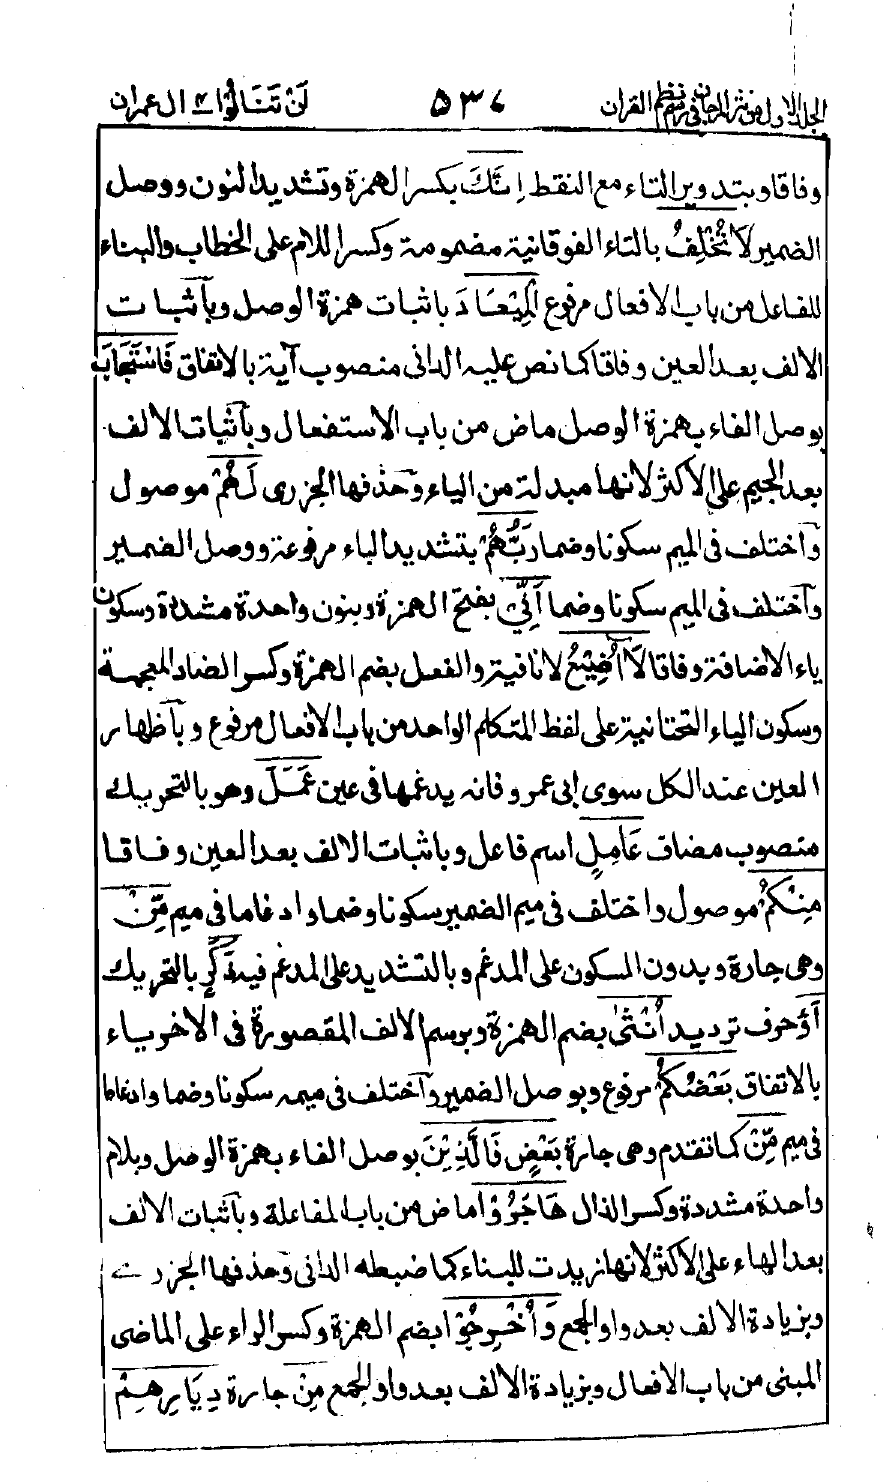 الجلد الاول من نثر المرجان فی رسم نظم القران ۵۳۷ لَنْ تَنَالُوا ۴ ال عمران
وفاقا وبتدویر التاء مع النقط اِنَّكَ بكسر الهمزة وتشدید النون ووصل
الضمیر لَا تُخْلِفُ بالتاء الفوقانیة مضمومة وكسر اللام علی الخطاب والبناء
للفاعل من باب الافعال مرفوع الْمِیْعَادَ باثبات همزة الوصل وبآثبات
الالف بعد العین وفاقا كما نص علیه الدانی منصوب آیة بالاتفاق فَاسْتَجَابَ
بوصل الفاء بهمزة الوصل ماض من باب الاستفعال وبآثبات الالف
بعد الجیم علی الاكثر لانها مبدلة من الیاء وحذفها الجزری لَهُمْ موصول
وآختلف فی المیم سكونا وضما رَبُّهُمْ بتشدید الباء مرفوعة ووصل الضمیر
وآختلف فی المیم سكونا وضما اَنِّیْ بفتح الهمزة وبنون واحدة مشددة وسكون
یاء الاضافة وفاقا لَآ اُضِیْعُ لا نافیة والفعل بضم الهمزة وكسر الضاد المعجمة
وسكون الیاء التحتانیة علی لفظ المتكلم الواحد من باب الافعال مرفوع وبآظهار
العین عند الكل سوی ابی عمرو فانه یدغمها فی عین عَمَلَ وهو بالتحریك
منصوب مضاف عَامِلٍ اسم فاعل وباثبات الالف بعد العین وفاقا
مِنْكُمْ موصول واختلف فی میم الضمیر سكونا وضما وادغاما فی میم مِّنْ
وهی جارة وبدون السكون علی المدغم وبالتشدید علی المدغم فیه ذَكَرٍ بالتحریك
اَوْ حرف تردید اُنْثٰی بضم الهمزة وبرسم الالف المقصورة فی الاخر یاء
بالاتفاق بَعْضُكُمْ مرفوع وبوصل الضمیر وآختلف فی میمه سكونا وضما وادغاما
فی میم مِّنْ كما تقدم وهی جارة بَعْضٍ فَالَّذِیْنَ بوصل الفاء بهمزة الوصل وبلام
واحدة مشددة وكسر الذال هَاجَرُوْا ماض من باب المفاعلة وبآثبات الالف
بعد الهاء علی الاكثر لانها زیدت للبناء كما ضبطه الدانی وحذفها الجزری
وبزیادة الالف بعد واو الجمع وَاُخْرِجُوْا بضم الهمزة وكسر الراء علی الماضی
المبنی من باب الافعال وبزیادة الالف بعد واو الجمع مِنْ جارة دِیَارِهِمْ